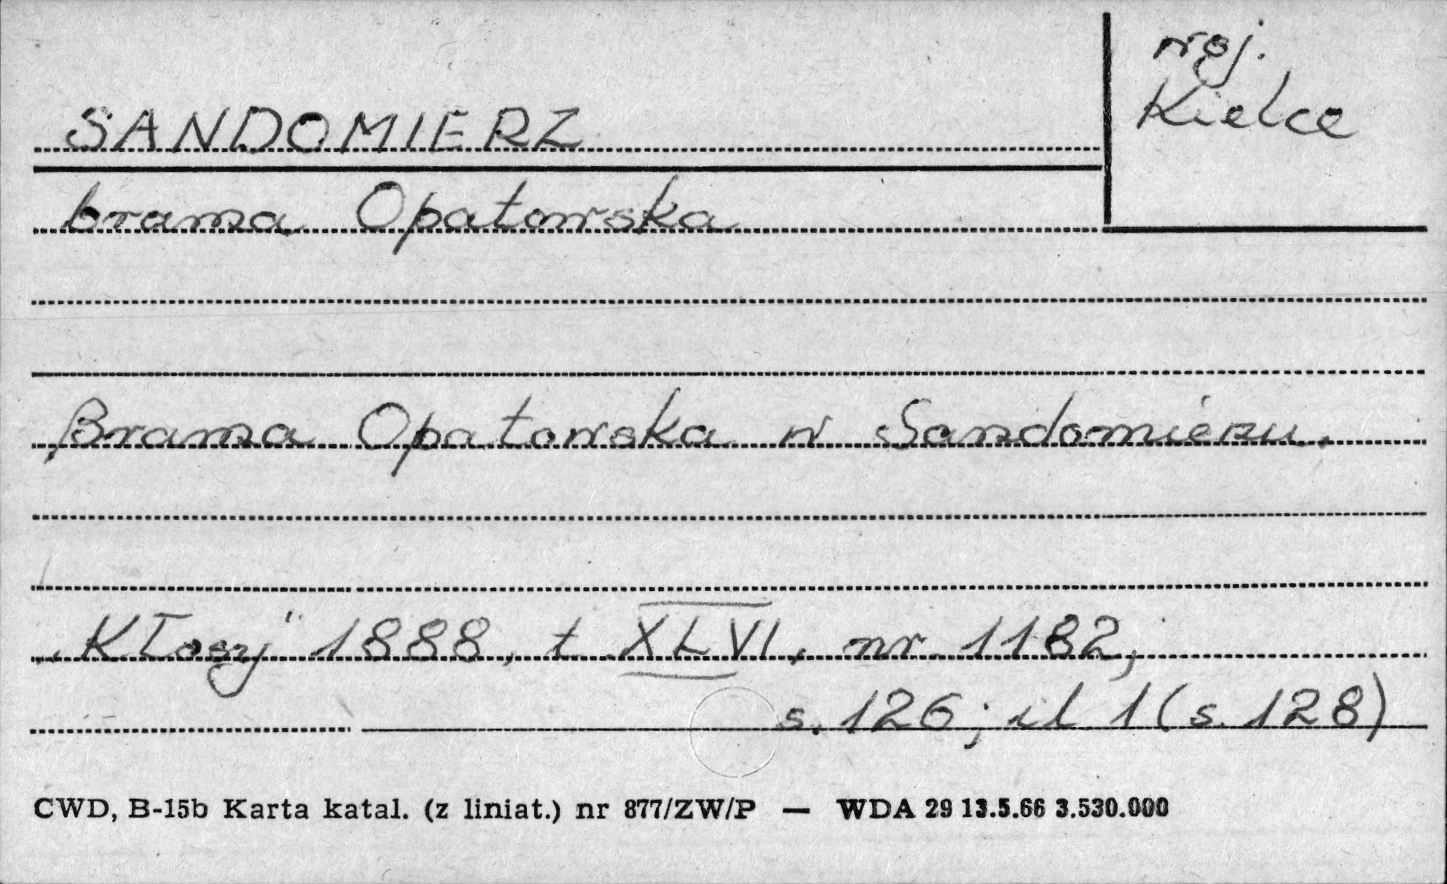 woj.
Kielce
SANDOMIERZ
brama Opatowska
Brama Opatowska w Sandomierzu.
„Kłosy" 1888, t. XLVI, nr 1182,
s. 126; il 1 (s. 128)
CWD, B-15b Karta katal. (z liniat.) nr 877/ZW/P — WDA 29 13.5.66 3.530.000